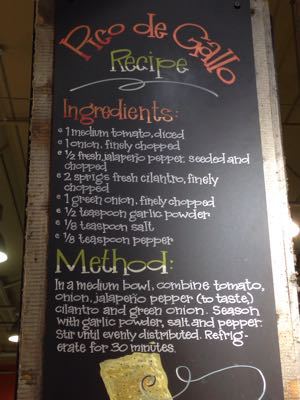 Pico de Gallo
Recipe
Ingredients:
• 1 medium tomato, diced
• 1 onion, finely chopped
• 1/2 fresh jalapeño pepper, seeded and
chopped
• 2 sprigs fresh cilantro, finely
chopped
• 1 green onion, finely chopped
• 1/2 teaspoon garlic powder
• 1/8 teaspoon salt
• 1/8 teaspoon pepper
Method:
In a medium bowl, combine tomato,
onion, jalapeño pepper (to taste)
cilantro and green onion. Season
with garlic powder, salt and pepper.
Stir until evenly distributed. Refrig-
erate for 30 minutes.